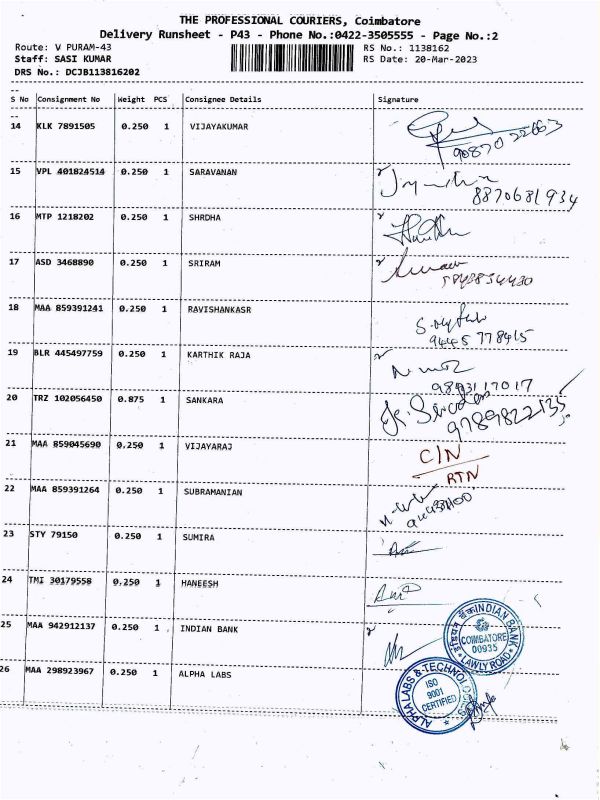 THE PROFESSIONAL COURIERS, Coimbatore
Delivery Runsheet - P43 - Phone No.:0422-3505555 - Page No.:2
Route: V PURAM-43 RS No.: 1138162
Staff: SASI KUMAR RS Date: 20-Mar-2023
DRS No.: DCJB113816202
S No Consignment No Weight PCS Consignee Details Signature
14 KLK 7891505 0.250 1 VIJAYAKUMAR
15 VPL 401824514 0.250 1 SARAVANAN
8870681934
16 MTP 1218202 0.250 1 SHRDHA
17 ASD 3468890 0.250 1 SRIRAM
18 MAA 859391241 0.250 1 RAVISHANKASR
9445 778415
19 BLR 445497759 0.250 1 KARTHIK RAJA
9893117017
20 TRZ 102056450 0.875 1 SANKARA
9789822135
21 MAA 859045690 0.250 1 VIJAYARAJ C/N
RTN
22 MAA 859391264 0.250 1 SUBRAMANIAN
23 STY 79150 0.250 1 SUMIRA
24 TMI 30179558 0.250 1 HANEESH
25 MAA 942912137 0.250 1 INDIAN BANK
इंडियन बैंक INDIAN BANK
COIMBATORE
00935
LAWLY ROAD
26 MAA 298923967 0.250 1 ALPHA LABS
ALPHA LABS & TECHNOLOGIES
ISO
9001
CERTIFIED